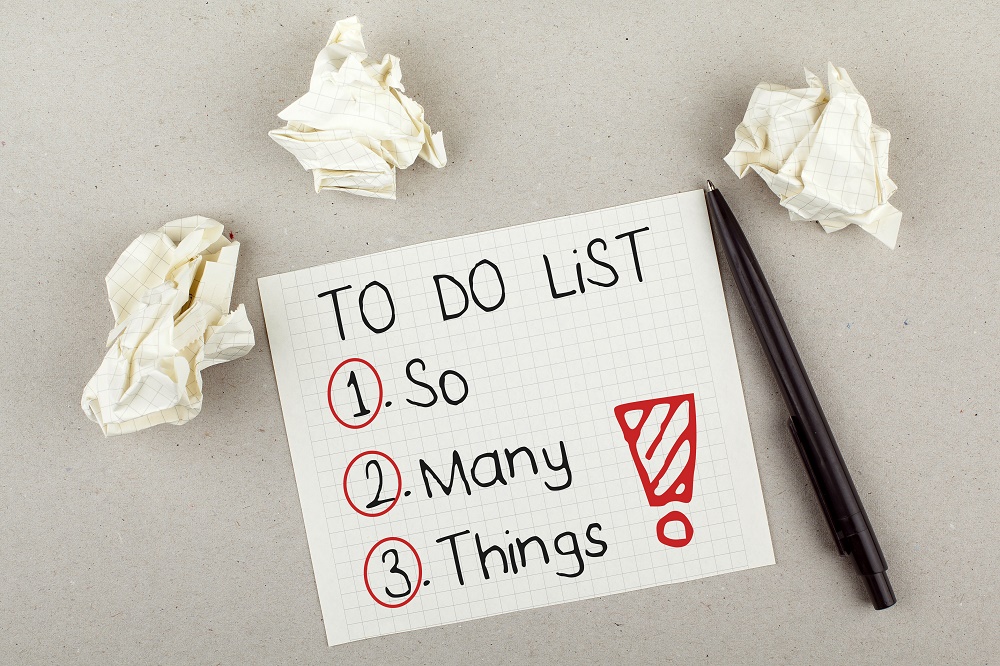 TO DO LiST
1. So
2. Many
3. Things
!